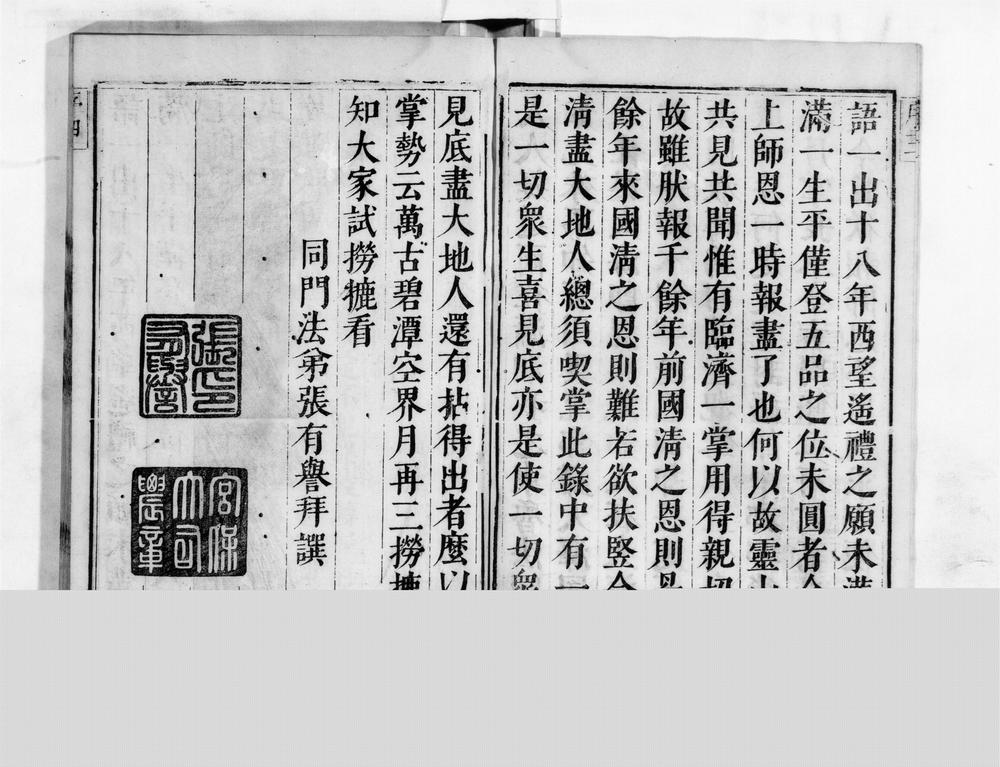 語一出十八年西望遙禮之願未滿
滿一生平僅登五品之位未圓者今
上師恩一時報盡了也何以故靈山
共見共聞惟有臨濟一掌用得親切
故雖肰報千餘年前國淸之恩則
餘年來國淸之恩則難若欲扶竪
淸盡大地人總須喫掌此錄中有一
是一切衆生喜見底亦是使一切衆
見底盡大地人還有拈得出者麼以
掌勢云萬古碧潭空界月再三撈摝
知大家試撈摝看
同門法弟張有譽拜譔
張有譽印
宮保大司農章
序四